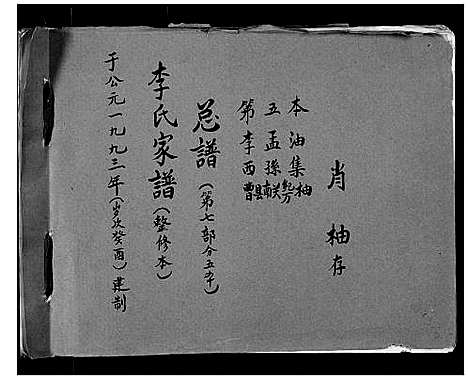 肖柚存
本油集柚
五孟孫
第李西曹县
总譜(第七部分五本)
李氏家譜(整修本)
于公元一九九三年(岁次癸酉)建制